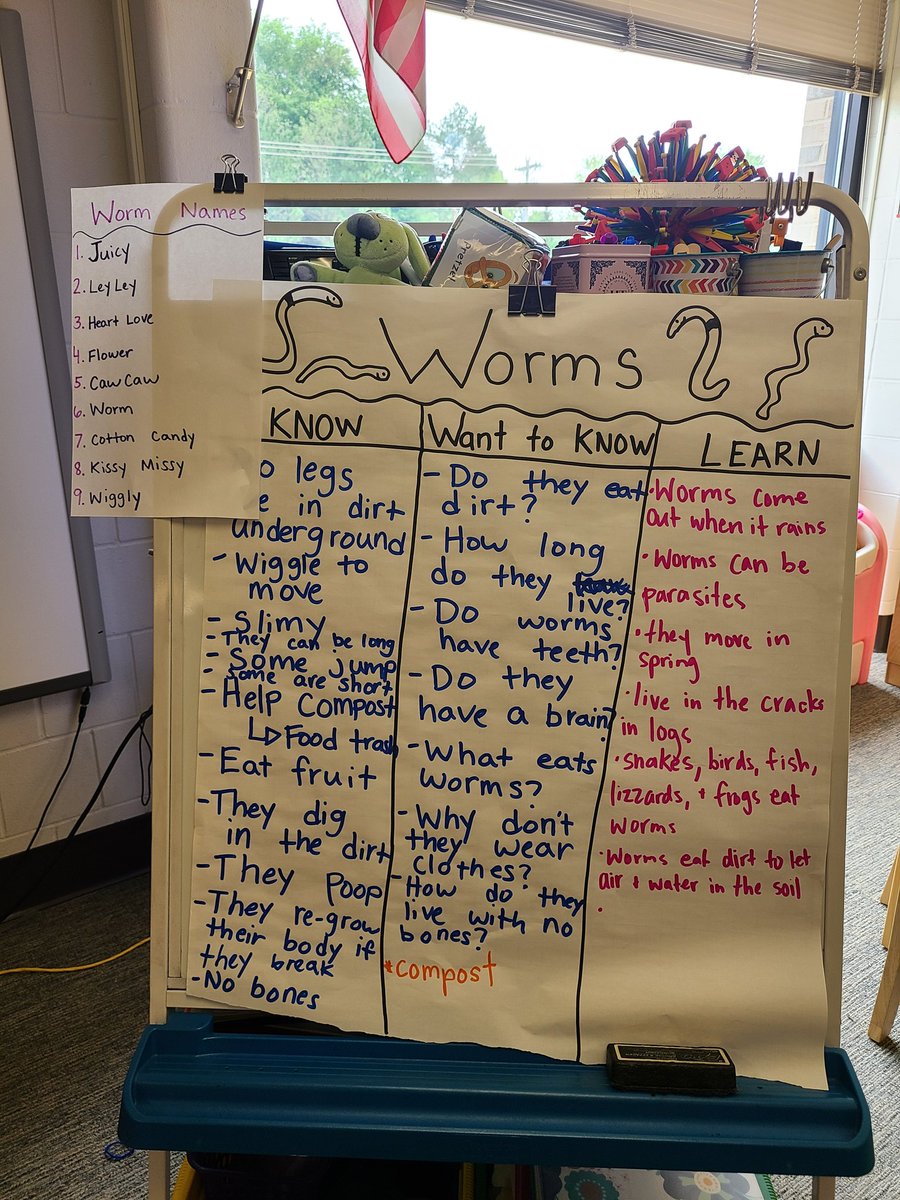 Worm Names
1. Juicy
2. LeyLey
3. Heart Love
4. Flower
5. CawCaw
6. Worm
7. Cotton Candy
8. Kissy Missy
9. Wiggly
Pretzel
Worms
KNOW
legs
in dirt
underground
- Wiggle to
move
- Slimy
- They can be long
- Some jump
- Some are short
- Help Compost
↳ Food trash
- Eat fruit
- They dig
in the dirt
- They Poop
- They re-grow
their body if
they break
- No bones
Want to KNOW
- Do they eat
dirt?
- How long
do they
live?
- Do worms
have teeth?
- Do they
have a brain?
- What eats
worms?
- Why don't
they wear
clothes?
- How do they
live with no
bones?
*compost
LEARN
• Worms come
out when it rains
• Worms can be
parasites
• they move in
spring
• live in the cracks
in logs
• snakes, birds, fish,
lizzards, + frogs eat
worms
• Worms eat dirt to let
air + water in the soil